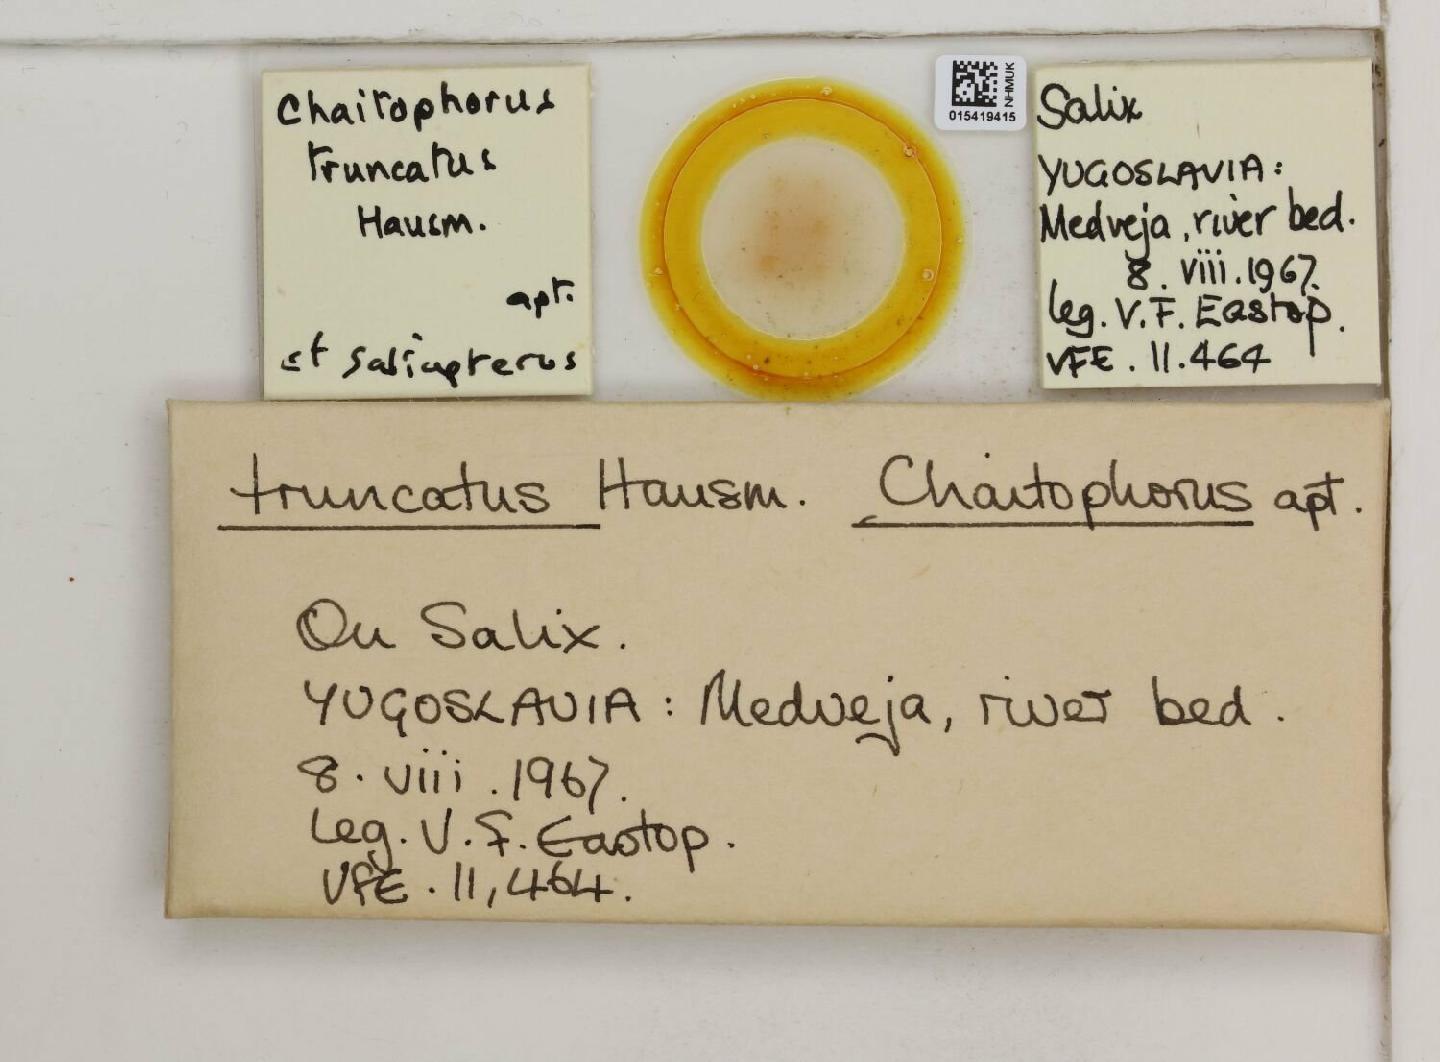 Chaitophorus
truncatus
Hausm.
apt.
cf saliapterus
NHMUK
015419415
Salix
YUGOSLAVIA:
Medveja, river bed.
8. viii. 1967.
leg. V. F. Eastop.
VFE. 11.464
truncatus Hausm. Chaitophorus apt.
On Salix.
YUGOSLAVIA: Medveja, river bed.
8. viii. 1967.
Leg. V. F. Eastop.
VFE. 11,464.